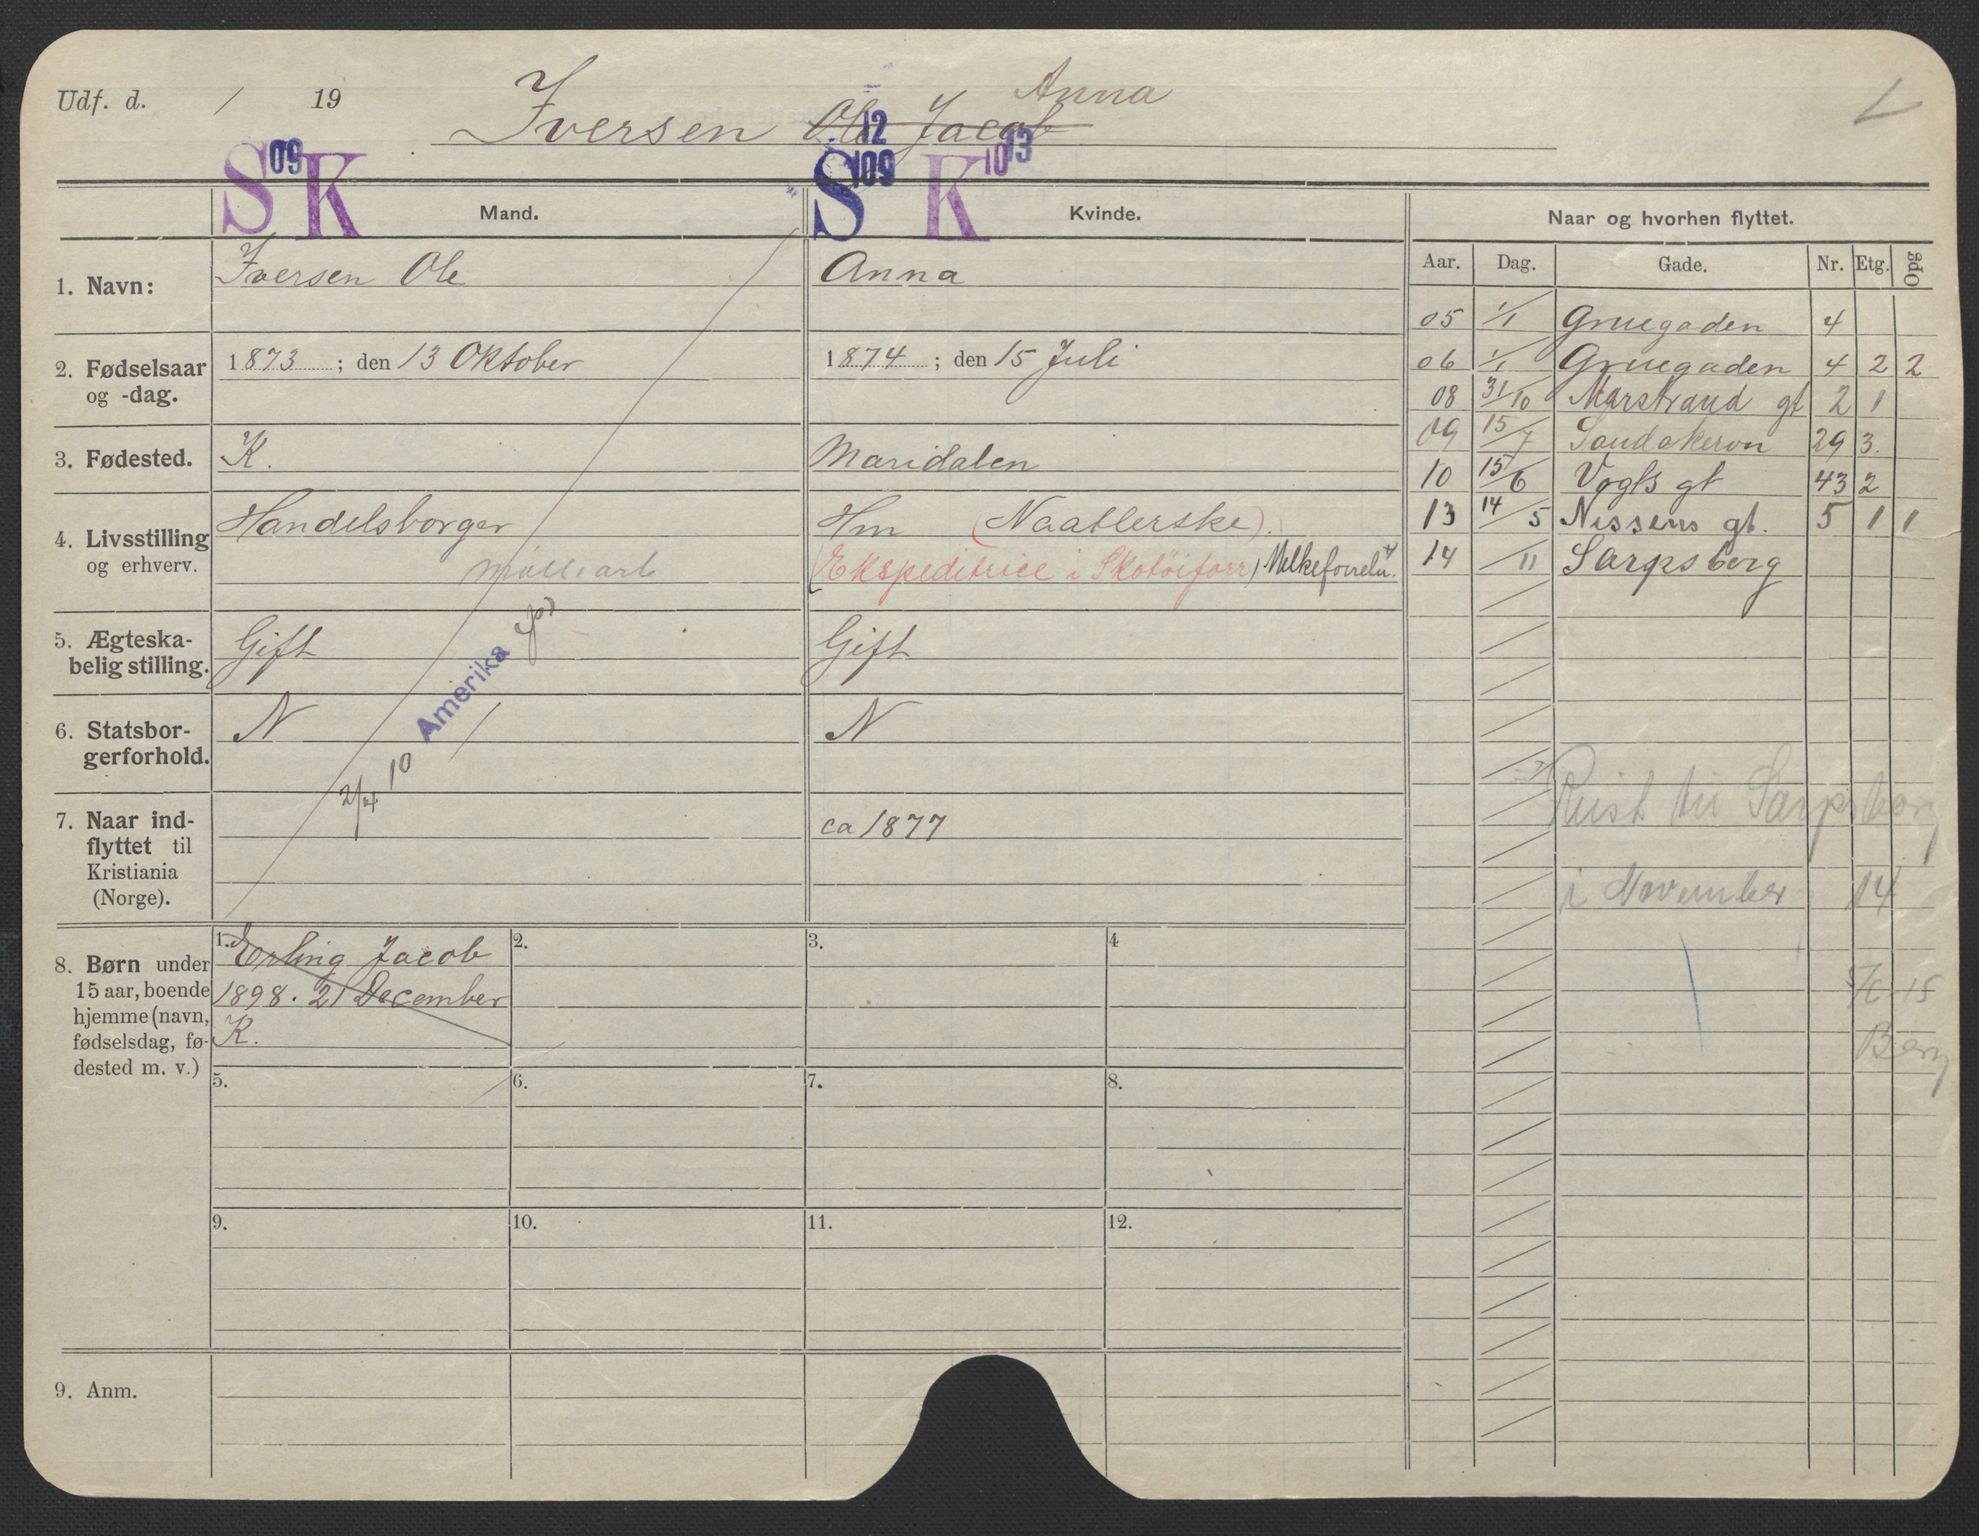 Udf. d. / 19
Iversen Ole Jacob Anna
S 09 K
12
S 109 K 10 13
Mand.
Kvinde.
Naar og hvorhen flyttet.
Aar. Dag. Gade. Nr. Etg. Opg
1. Navn:
Iversen Ole
Anna
2. Fødselsaar
og -dag.
1873 ; den 13 Oktober
1874 ; den 15 Juli
3. Fødested.
K.
Maridalen
4. Livsstilling
og erhverv.
Handelsborger
Hm (Naatlerske).
(Ekspeditrice i Skotöiforr)
5. Ægteska-
belig stilling.
Gift
Gift
6. Statsbor-
gerforhold.
N
N
2/4 10 Amerika
7. Naar ind-
flyttet til
Kristiania
(Norge).
ca 1877
8. Børn under
15 aar, boende
hjemme (navn,
fødselsdag, fø-
dested m. v.)
1. Erling Jacob
1898. 21 December
K.
2.
3.
4
5.
6.
7.
8.
9.
10.
11.
12.
9. Anm.
05 1/1 Gruegaden 4
06 1/1 Gruegaden 4 2 2
08 31/10 Marstrand gt 2 1
09 15/7 Sandakervn 29 3.
10 15/6 Vogts gt 43 2
13 14/5 Nissens gt. 5 1 1
14 /11 Sarpsborg
Reist til Sarpsborg
i November 14
15
Berg